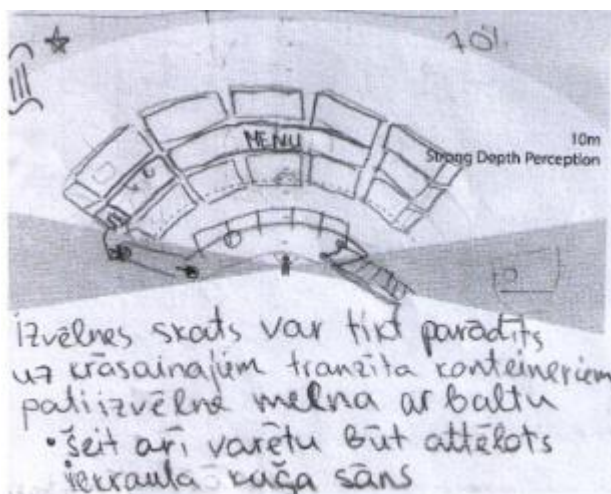 70%
MENU
10m
Strong Depth Perception
izvēlnes skats var tikt parādīts
uz krāsainajiem tranzīta konteineriem
pati izvēlne melna ar baltu
• šeit arī varētu būt attēlots
iekrauta kuģa sāns